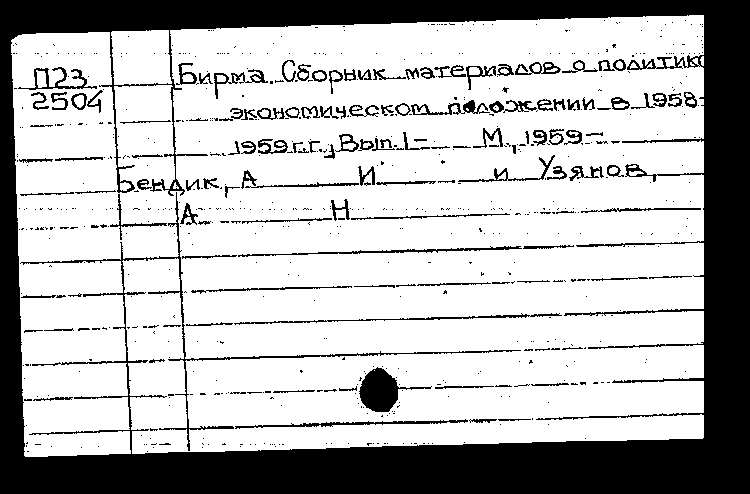 П23
2504
Бирма. Сборник материалов о политико
экономическом положении в 1958-
1959 г.г., Вып. 1- М., 1959-
Бендик, А И и Узянов,
А Н